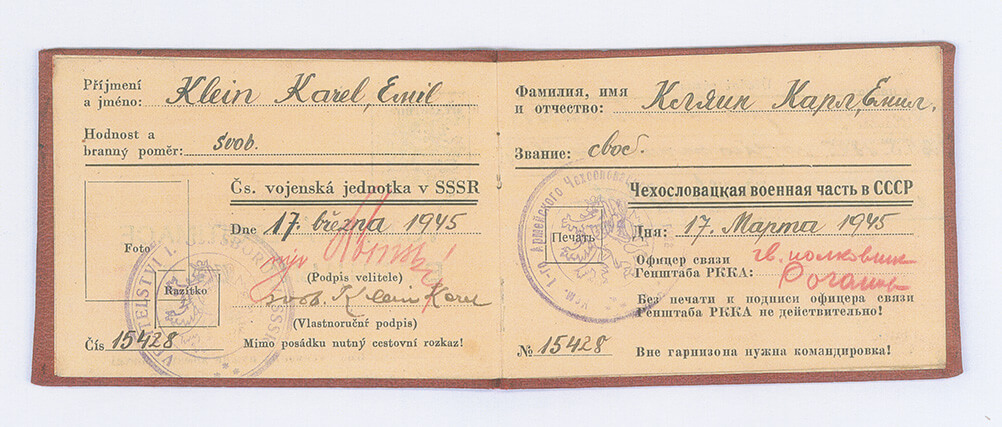 Příjmení
a jméno: Klein Karel, Emil
Hodnost a
branný poměr: svob.
Čs. vojenská jednotka v SSSR
Dne 17. března 1945
Foto
(Podpis velitele)
Razítko
svob. Klein Karel
(Vlastnoruční podpis)
Čís 15428 Mimo posádku nutný cestovní rozkaz!
Фамилия, имя
и отчество: Кляин Карл, Емил.
Звание: своб.
Чехословацкая военная часть в СССР
Печать
Дня: 17. Марта 1945
Офицер связи гв. полковник
Генштаба РККА:
Без печати к подписи офицера связи
Генштаба РККА не действительно!
№ 15428 Вне гарнизона нужна командировка!